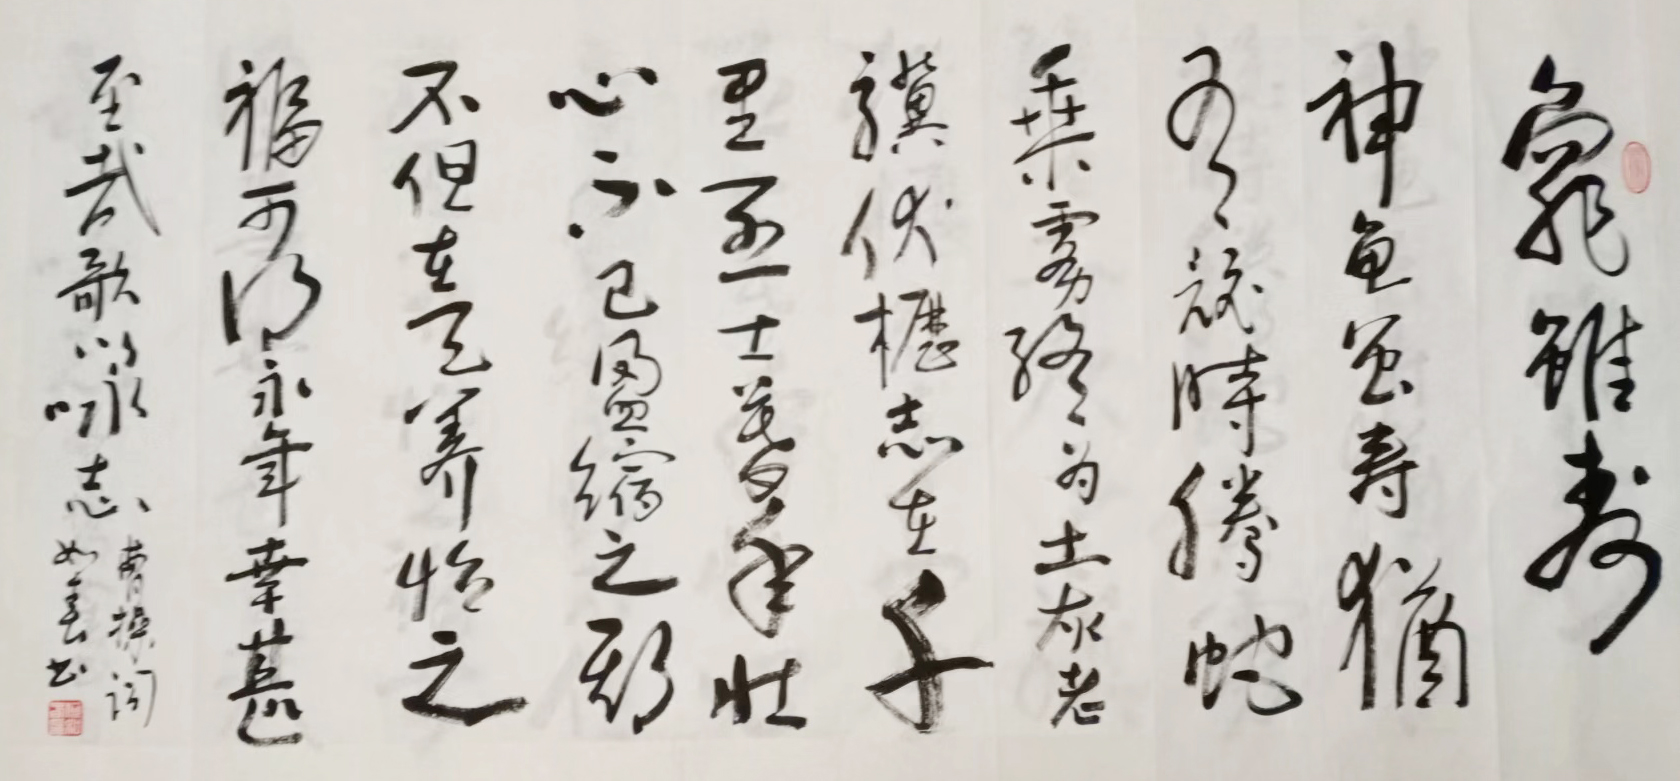 龜雖寿
神龟虽寿猶
有竟時騰蛇
乘霧終为土灰老
驥伏櫪志在千
里烈士暮年壮
心不已盈缩之期
不但在天养怡之
福可得永年幸甚
至哉歌以咏志
曹操词
书